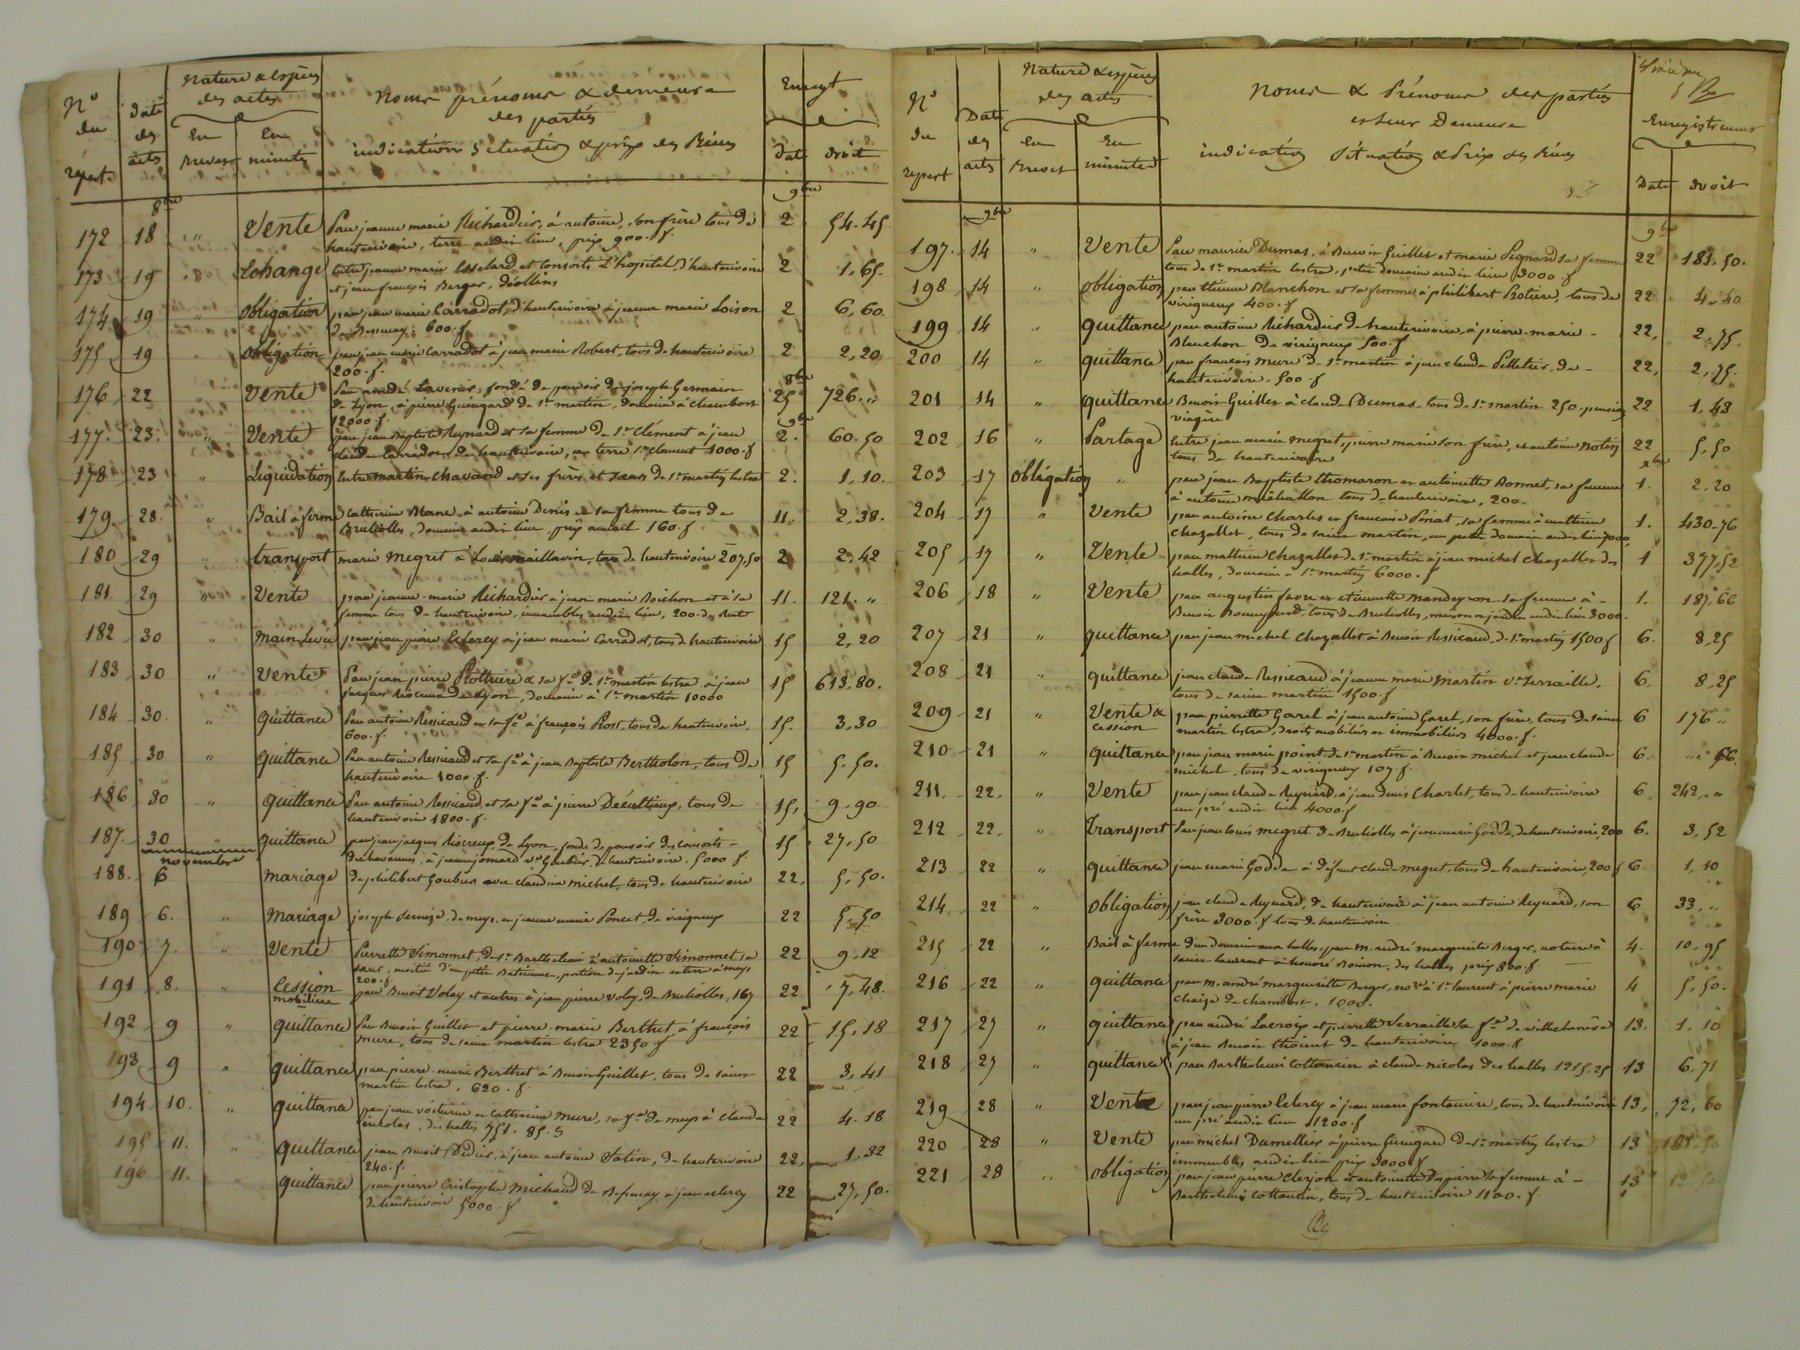 N° du répert.
Date des actes
Nature & espèces des actes
En Brevet
En minutes
Noms prénoms & demeure
des parties
indication situation & prix des Biens
Enregt
date
droit
8bre
9bre
172 18 " Vente Par jeanne marie Richardier, à antoine, son frère tous de 2 54.45
hauterivoire, terre audit lieu, prix 900.f
173 19 " Echange entre jeanne marie et consorts L'hopital, d'hauterivoire 2 1,65.
et jean françois Berger,
174 19 Obligation par jean marie Carradot, d'hauterivoire à jeanne marie Loison 2 6,60.
de 600.f
175 19 obligation par jean marie Carradot à jean marie Robert, tous de hauterivoire 2 2,20
200.f.
8bre
176 22 Vente Par andré fondé de pouvoir de joseph Germain 25 726."
de Lyon, à pierre Guérigard de St martin, domaine à chambost
12000 f.
9bre
177. 23. " Vente par jean Baptiste Reynard et sa femme de St Clément à jean 2. 60.50
claude Carrador de hauterivoire, une terre St clement 1000.f
178 23 " Liquidation Entre martin Chavand et ses frères et soeurs de St martin lestra 2. 1,10.
179. 28. " Bail à ferme Catherine Blanc à antoine Denis et sa femme tous de 11. 2,38.
Brulliolles, domaine audit lieu prix annuel 160.f
180 29 transport marie Megret à Louis maillavin, tous de hauterivoire 207,50 2 2,42
181 29 " Vente par jeanne-marie Richardier à jean marie Boichon et à sa 11. 121. "
femme tous de hauterivoire, immeubles audit lieu, 200. de rente
182 30 " Main Levée par jean pierre Leclercy à jean marie Carradot, tous de hauterivoire 15 2,20
183 30 " Vente Par jean pierre & sa fe de St martin lestra à jean 15 613,80.
jacques de Lyon, domaine à St martin 10000
184 30. " Quittance Par antoine Ressicaud et sa fe à françois Prost, tous de hauterivoire. 15. 3,30
600.f.
185 30 " Quittance Par antoine Ressicaud et sa fe à jean Baptiste Bertholon, tous de 15 5.50.
hauterivoire 1000.f.
186 30 " Quittance Par antoine Ressicaud et sa fe à pierre tous de 15, 9.90
hauterivoire 1800.f.
187. 30 " quittance par jean jacques de Lyon, fondé de pouvoir des consorts 15. 27,50
à jeanne jomard ve Goubier, de hauterivoire. 5000 f
novembre
188. 6 mariage de philibert Goubier avec claudine michel, tous de hauterivoire 22, 5,50.
189 6. " Mariage joseph de meys, et jeanne marie Poncet, de virigneux 22 5,50
190 7. " Vente Pierrette Simonnet, de St Barthelemi à antoinette Simonnet, sa 22 9,12
soeur, moitié d'un petit Batiment, portion de jardin et terre à meys
200.f.
191 8. " Cession par Benoit Volay et autres à jean pierre Volay, de Brulliolles, 167 22 7,48.
mobilière
192 9 " quittance Par Benoit Guillet et pierre-marie Berthet, à françois 22 15,18
mure, tous de saint martin lestra 2350 f
193 9 " quittance par pierre-marie Berthet à Benoit Guillet, tous de saint 22 3,41
martin lestra, 620.f.
194 10. " quittance par jean voiturier et Catherine Mure, sa fe de meys à claude 22 4.18
nicolas, des halles 751.85.
195 11. " Quittance jean Benoit Didier, à jean antoine Satin, de hauterivoire 22, 1,32
240.f.
196 11. quittance par pierre Cristophe Michaud de à jean Leclercy 22 27,50.
de hauterivoire 5000.f
N° du répert
Date des actes
Nature & espèces des actes
en Brevet
En minutes
Noms & Prénoms des parties
et leur Demeure
indication Situation & Prix des Biens
Enregistrement
Date
droit
9bre
9bre
197. 14 " Vente Par maurice Dumas, à Benoit Guillet et marie sa femme 22 183.50.
tous de St martin lestra, petit domaine audit lieu 3000.f
198 14 " obligation par etienne Blanchon et sa femme à philibert tous de 22 4.40
virigneux 400.f
199 14 " quittance par antoine Richardier de hauterivoire, à pierre-marie 22, 2,75.
Blanchon de virigneux 500.f
200 14 " quittance par françois mure de St martin à jean claude Pelletier, de 22, 2,75.
hauterivoire. 500.f
201 14 " quittance Benoit Guillet à claude Dumas, tous de St martin 250. pension 22 1,43
viagère
202 16 " Partage Entre jean marie megret, pierre marie son frère, et antoine tous de hauterivoire 22 5,50
Xbre
203 17 obligation " par jean Baptiste thomaron et antoinette Bonnet, sa femme 1. 2.20
à antoine michallon tous de hauterivoire, 200.
204 17 " Vente par antoine Charles et françoise sa femme à mathieu 1. 430.76
Chazallet, tous de saint martin, un petit domaine audit lieu 7000,
205 17 " Vente par mathieu Chazallet de St martin à jean michel Chazallet des 1 377,52
halles, domaine à St martin 6000.f
206 18 " Vente par augustin favre et etiennette sa femme à 1. 187,66
Benoit tous de Brulliolles, maison et jardin audit lieu 3000.
207 21 " quittance par jean michel Chazallet à Benoit Ressicaud, de St martin 1500 f 6. 8.25
208 21 " quittance jean claude Ressicaud à jeanne marie Martin ve 6, 8,25
tous de saint martin 1500.f
209 21 " Vente & par pierrette Garel à jean antoine Garel, son frère, tous de saint 6 176 "
cession martin lestra, droits mobiliers et immobiliers 4000.f.
210 21 " quittance par jean marie point de St martin à Benoit michel et jean claude 6. " 66.
michel, tous de virigneux 107 f.
211. 22. " Vente par jean claude Reynard, à jean denis Charlet, tous de hauterivoire 6 242, "
un pré audit lieu 4000 f
212 22. " Transport Par jean louis megret de Brulliolles à jean marie Godde, de hauterivoire, 200 6. 3,52
213 22 " quittance jean marie Godde à défunt claude megret, tous de hauterivoire, 200 f 6. 1,10
214 22 " obligation jean claude Reynard, de hauterivoire à jean antoine Reynard, son 6 33, "
frère 3000.f tous de hauterivoire
215 22 " Bail à ferme d'un domaine aux halles, par M. andré marguerite Berger, notaire à 4. 10,95
saint laurent à honoré Boinon, des halles prix 800.f
216 22 " quittance par m. andré marguerite Berger, nore à St laurent à pierre marie 4 5,50.
chaize de chambost. 1000.
217 27 " quittance par andré Lacroix et pierrette sa fe de villechenève 13. 1,10
à jean Benoit thoinet de hauterivoire 1000.f
218 27 " quittance par Barthelemi Cottancin à claude nicolas des halles 1215.25 13 6,71
219 28 " Vente par jean pierre Leclercy à jean marie fontanière, tous de hauterivoire 13, 72,60
un pré audit lieu 1200.f
220 28 " Vente par michel Dumellier à pierre Guérigard de St martin lestra 13 183.50
immeubles audit lieu prix 3000.f
221 28 " Obligation par jean pierre Clerjon et antoinette Depierre sa femme à 13
Barthelemi Cottancin, tous de hauterivoire 1100.f.